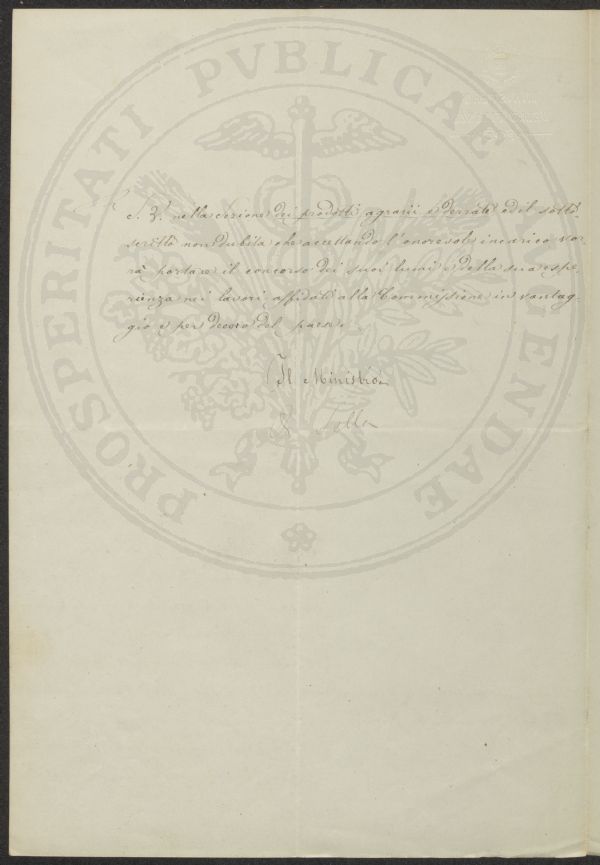 PROSPERITATI PVBLICAE AVGENDAE
nella sezione dei prodotti agrarii e derrate ed il sotto-
scritto non dubita che accettando l'onorevole incarico vor-
rà portare il concorso dei suoi lumi e della sua espe-
rienza nei lavori affidati alla Commissione in vantag-
gio e per decoro del paese.
Il Ministro
Sella